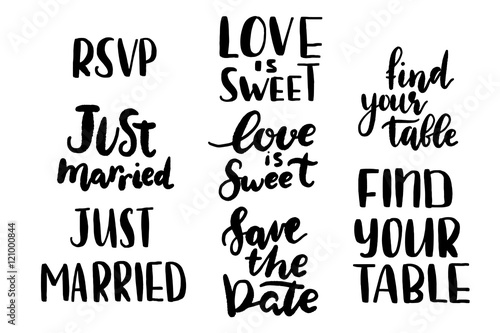 RSVP
Just
married
JUST
MARRIED
LOVE
is
SWEET
love
is
Sweet
Save
the
Date
find
your
table
FIND
YOUR
TABLE
121000844